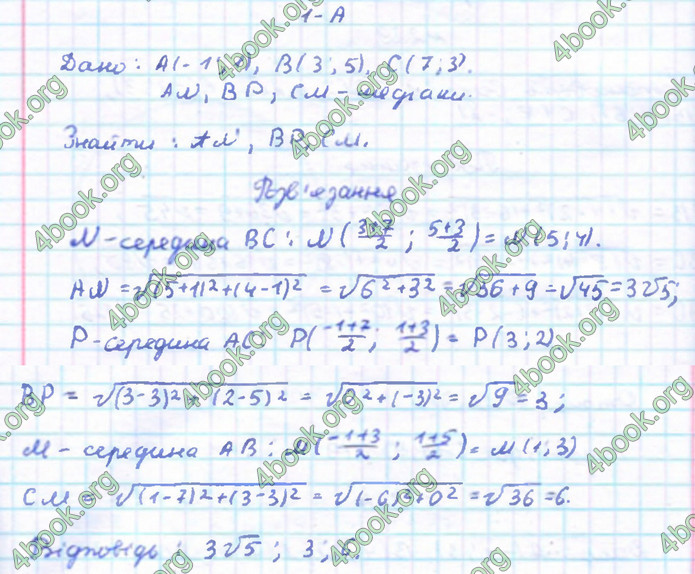 1-А
Дано: A(-1;1), B(3;5), C(7;3).
AN, BP, CM - медіани.
Знайти: AN, BP, CM.
Розв'язання
N-середина BC: N(3+7/2; 5+3/2) = N(5;4).
AN = √(5+1)²+(4-1)² = √6²+3² = √36+9 = √45 = 3√5;
P-середина AC: P(-1+7/2; 1+3/2) = P(3;2)
BP = √(3-3)²+(2-5)² = √0²+(-3)² = √9 = 3;
M-середина AB: M(-1+3/2; 1+5/2) = M(1;3)
CM = √(1-7)²+(3-3)² = √(-6)²+0² = √36 = 6.
Відповідь: 3√5; 3; 6.
4book.org